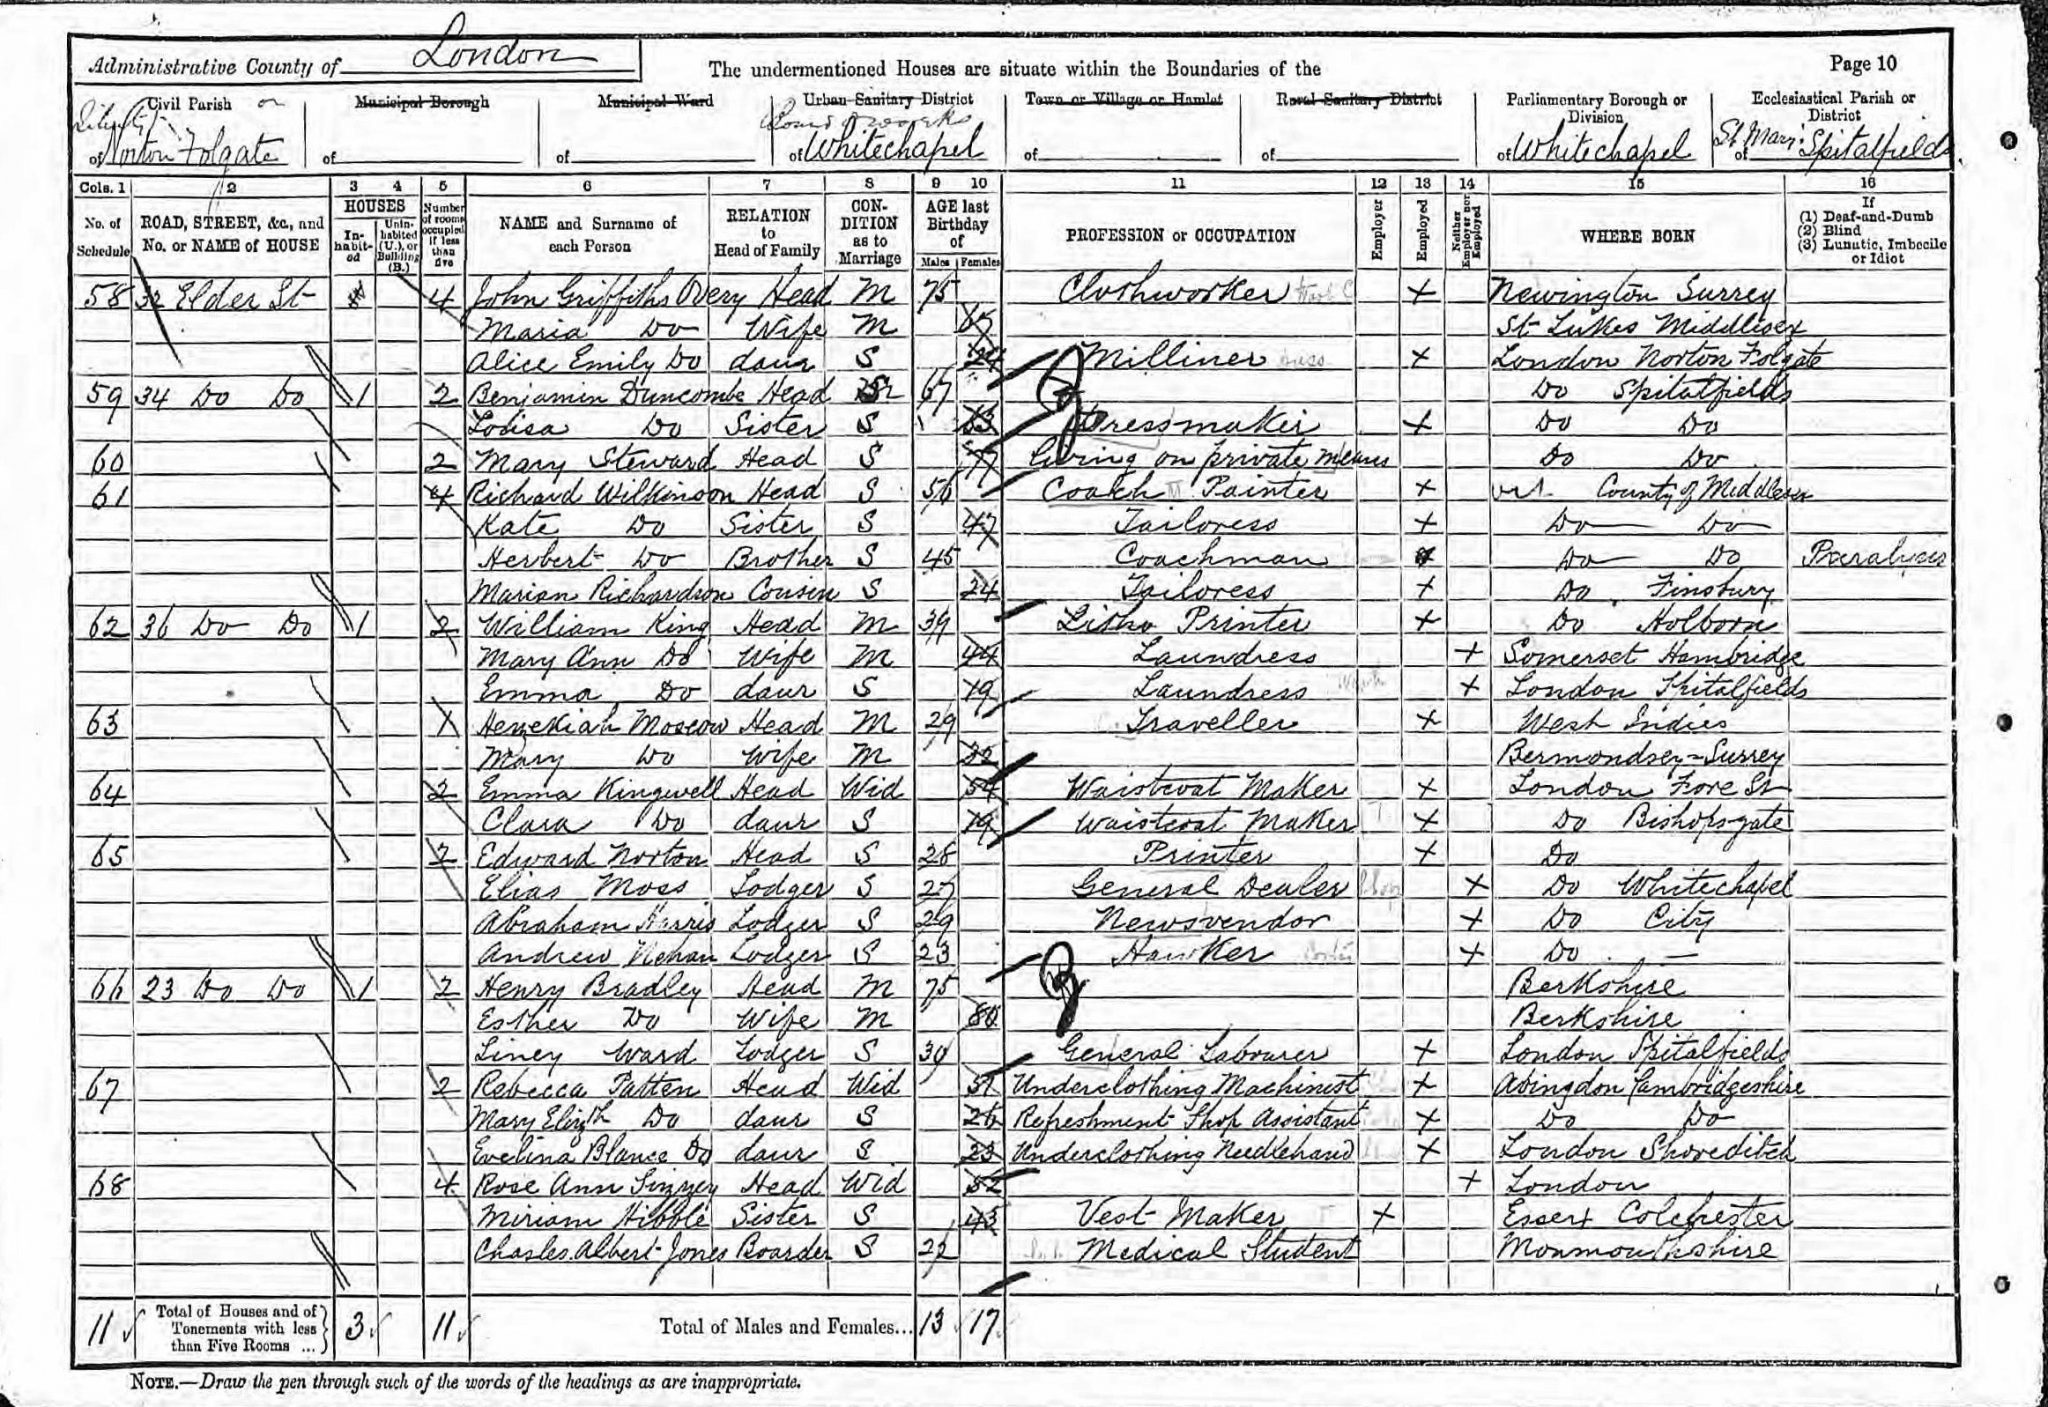 Administrative County of London
The undermentioned Houses are situate within the Boundaries of the
Page 10
Civil Parish or
Liberty
of Norton Folgate
Municipal Borough
of
Municipal Ward
of
Urban Sanitary District
Board of Works
of Whitechapel
Town or Village or Hamlet
of
Rural Sanitary District
of
Parliamentary Borough or
Division
of Whitechapel
Ecclesiastical Parish or
District
of St Mary Spitalfields
Cols. 1 2 3 4 5 6 7 8 9 10 11 12 13 14 15 16
No. of Schedule
ROAD, STREET, &c., and No. or NAME of HOUSE
HOUSES
In-habit-ed
Unin-habited (U.), or Building (B.)
Number of rooms occupied if less than five
NAME and Surname of each Person
RELATION to Head of Family
CON-DITION as to Marriage
AGE last Birthday of
Males Females
PROFESSION or OCCUPATION
Employer
Employed
Neither Employer nor Employed
WHERE BORN
If
(1) Deaf-and-Dumb
(2) Blind
(3) Lunatic, Imbecile or Idiot
58 32 Elder St 4 John Griffiths Overy Head M 75 Clothworker X Newington Surrey
Maria Do Wife M St Lukes Middlesex
Alice Emily Do daur S 24 Milliner X London Norton Folgate
59 34 Do Do 1 2 Benjamin Duncombe Head 67 Do Spitalfields
Louisa Do Sister S 63 Dressmaker X Do Do
60 2 Mary Steward Head S 77 Living on private means Do Do
61 4 Richard Wilkinson Head S 56 Coach Painter X County of Middlesex
Kate Do Sister S 47 Tailoress X Do Do
Herbert Do Brother S 45 Coachman X Do Do Paralysis
Marian Richardson Cousin S 24 Tailoress X Do Finsbury
62 36 Do Do 1 2 William King Head M 39 Litho Printer X Do Holborn
Mary Ann Do Wife M 44 Laundress X Somerset Hambridge
Emma Do daur S 19 Laundress X London Spitalfields
63 1 Hezekiah Moscow Head M 29 Traveller X West Indies
Mary Do Wife M 32 Bermondsey - Surrey
64 2 Emma Kingwell Head Wid 54 Waistcoat Maker X London Fore St
Clara Do daur S 19 Waistcoat Maker X Do Bishopsgate
65 2 Edward Norton Head S 28 Printer X Do
Elias Moss Lodger S 27 General Dealer X Do Whitechapel
Abraham Harris Lodger S 29 Newsvendor X Do City
Andrew Lodger S 23 Hawker X Do —
66 23 Do Do 1 2 Henry Bradley Head M 75 Berkshire
Esther Do Wife M 80 Berkshire
Liney Ward Lodger S 30 General Labourer X London Spitalfields
67 2 Rebecca Patten Head Wid 51 Underclothing Machinist X Abingdon Cambridgeshire
Mary Elizth Do daur S 26 Refreshment Shop Assistant X Do Do
Evelina Blance Do daur S 23 Underclothing Needlehand X London Shoreditch
68 4 Rose Ann Head Wid 52 X London
Miriam Hibble Sister S 43 Vest Maker X Essex Colchester
Charles Albert Jones Boarder S 22 Medical Student Monmouthshire
11 Total of Houses and of Tenements with less than Five Rooms ... 3 11 Total of Males and Females... 13 17
NOTE.—Draw the pen through such of the words of the headings as are inappropriate.